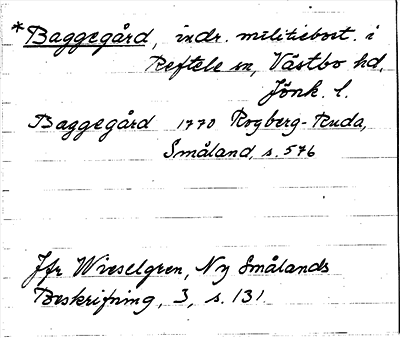 *Baggegård, indr. militiebost. i
Reftele sn, Västbo hd,
Jönk. l.
Baggegård 1770 Rogberg-Ruda,
Småland, s. 576
Jfr Wieselgren, Ny Smålands
Beskrifning, 3, s. 131